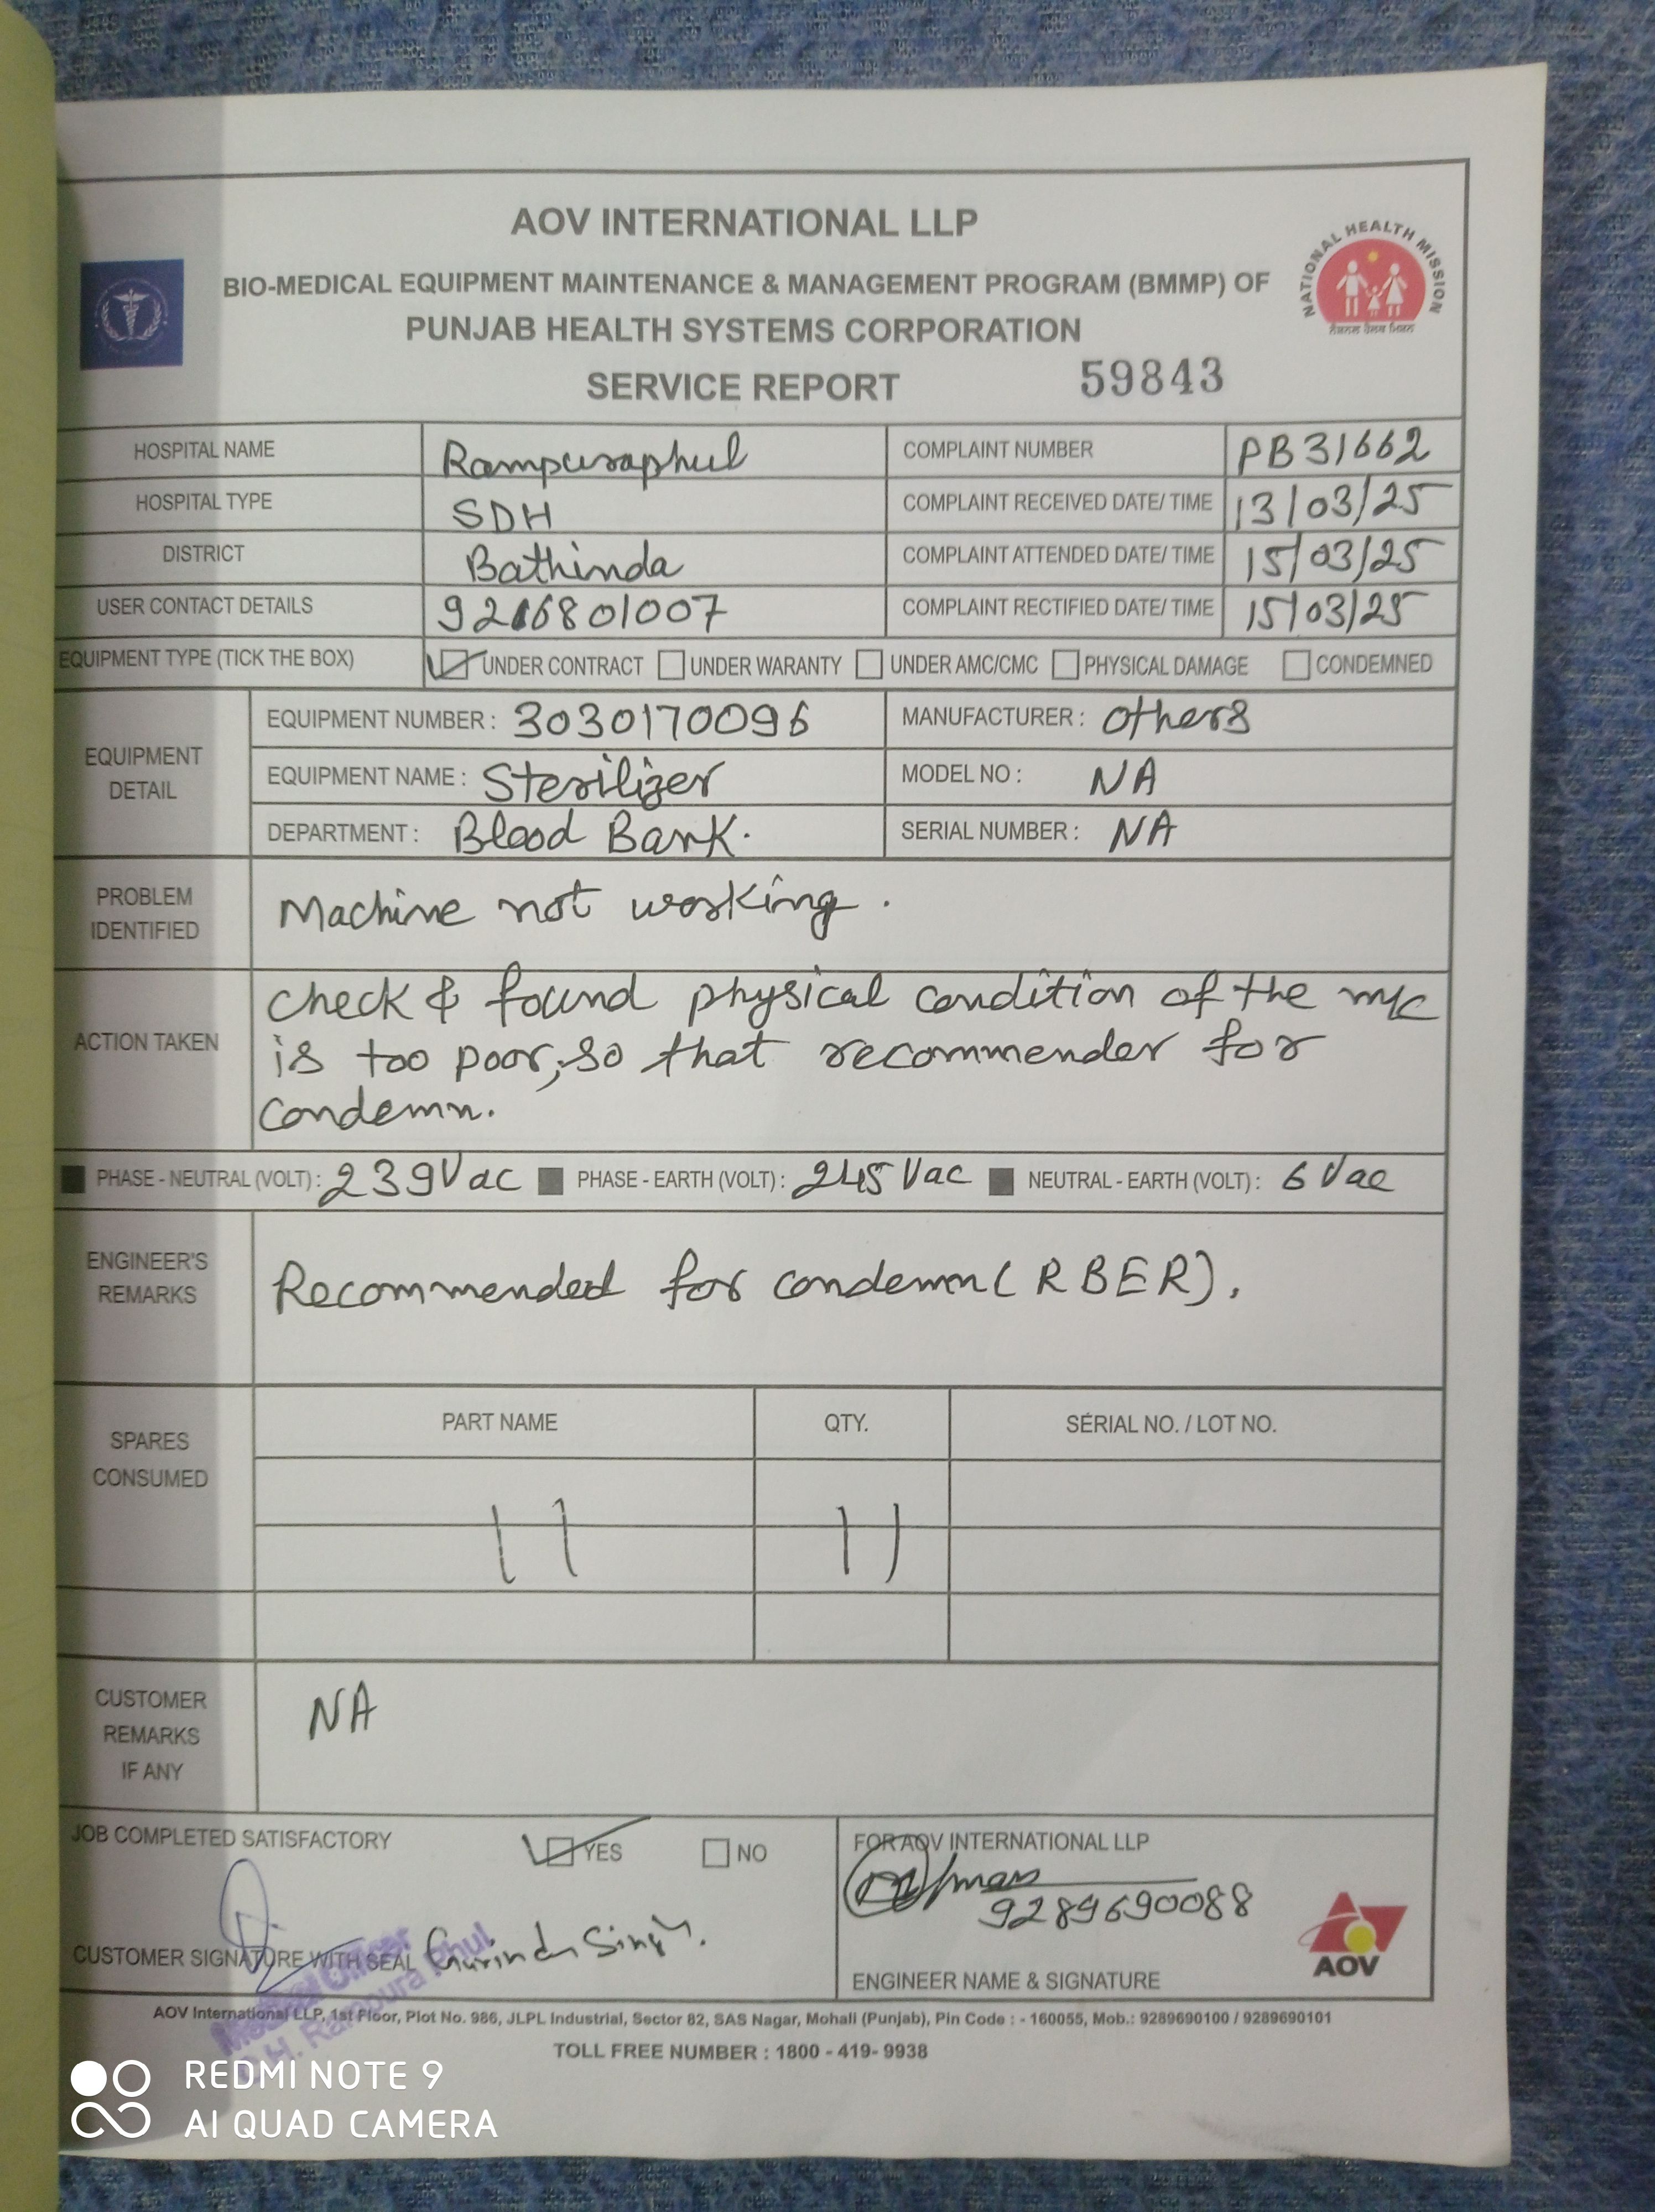 AOV INTERNATIONAL LLP
BIO-MEDICAL EQUIPMENT MAINTENANCE & MANAGEMENT PROGRAM (BMMP) OF
PUNJAB HEALTH SYSTEMS CORPORATION
SERVICE REPORT 59843
NATIONAL HEALTH MISSION
ਨੈਸ਼ਨਲ ਹੈਲਥ ਮਿਸ਼ਨ
HOSPITAL NAME Rampuraphul COMPLAINT NUMBER PB31662
HOSPITAL TYPE SDH COMPLAINT RECEIVED DATE/ TIME 13/03/25
DISTRICT Bathinda COMPLAINT ATTENDED DATE/ TIME 15/03/25
USER CONTACT DETAILS 9216801007 COMPLAINT RECTIFIED DATE/ TIME 15/03/25
EQUIPMENT TYPE (TICK THE BOX) UNDER CONTRACT UNDER WARANTY UNDER AMC/CMC PHYSICAL DAMAGE CONDEMNED
EQUIPMENT DETAIL
EQUIPMENT NUMBER : 3030170096 MANUFACTURER : others
EQUIPMENT NAME : Sterilizer MODEL NO : NA
DEPARTMENT : Blood Bank. SERIAL NUMBER : NA
PROBLEM IDENTIFIED
Machine not working.
ACTION TAKEN
check & found physical condition of the m/c
is too poor, so that recommender for
condemn.
PHASE - NEUTRAL (VOLT) : 239Vac PHASE - EARTH (VOLT) : 245 Vac NEUTRAL - EARTH (VOLT) : 6 Vac
ENGINEER'S REMARKS
Recommended for condemn (RBER).
SPARES CONSUMED
PART NAME QTY. SERIAL NO. / LOT NO.
CUSTOMER REMARKS IF ANY
NA
JOB COMPLETED SATISFACTORY YES NO
FOR AOV INTERNATIONAL LLP
9289690088
CUSTOMER SIGNATURE WITH SEAL Gurinder Singh.
Medical Officer
Rampura Phul
ENGINEER NAME & SIGNATURE
AOV
AOV International LLP, 1st Floor, Plot No. 986, JLPL Industrial, Sector 82, SAS Nagar, Mohali (Punjab), Pin Code : - 160055, Mob.: 9289690100 / 9289690101
TOLL FREE NUMBER : 1800 - 419- 9938
REDMI NOTE 9
AI QUAD CAMERA